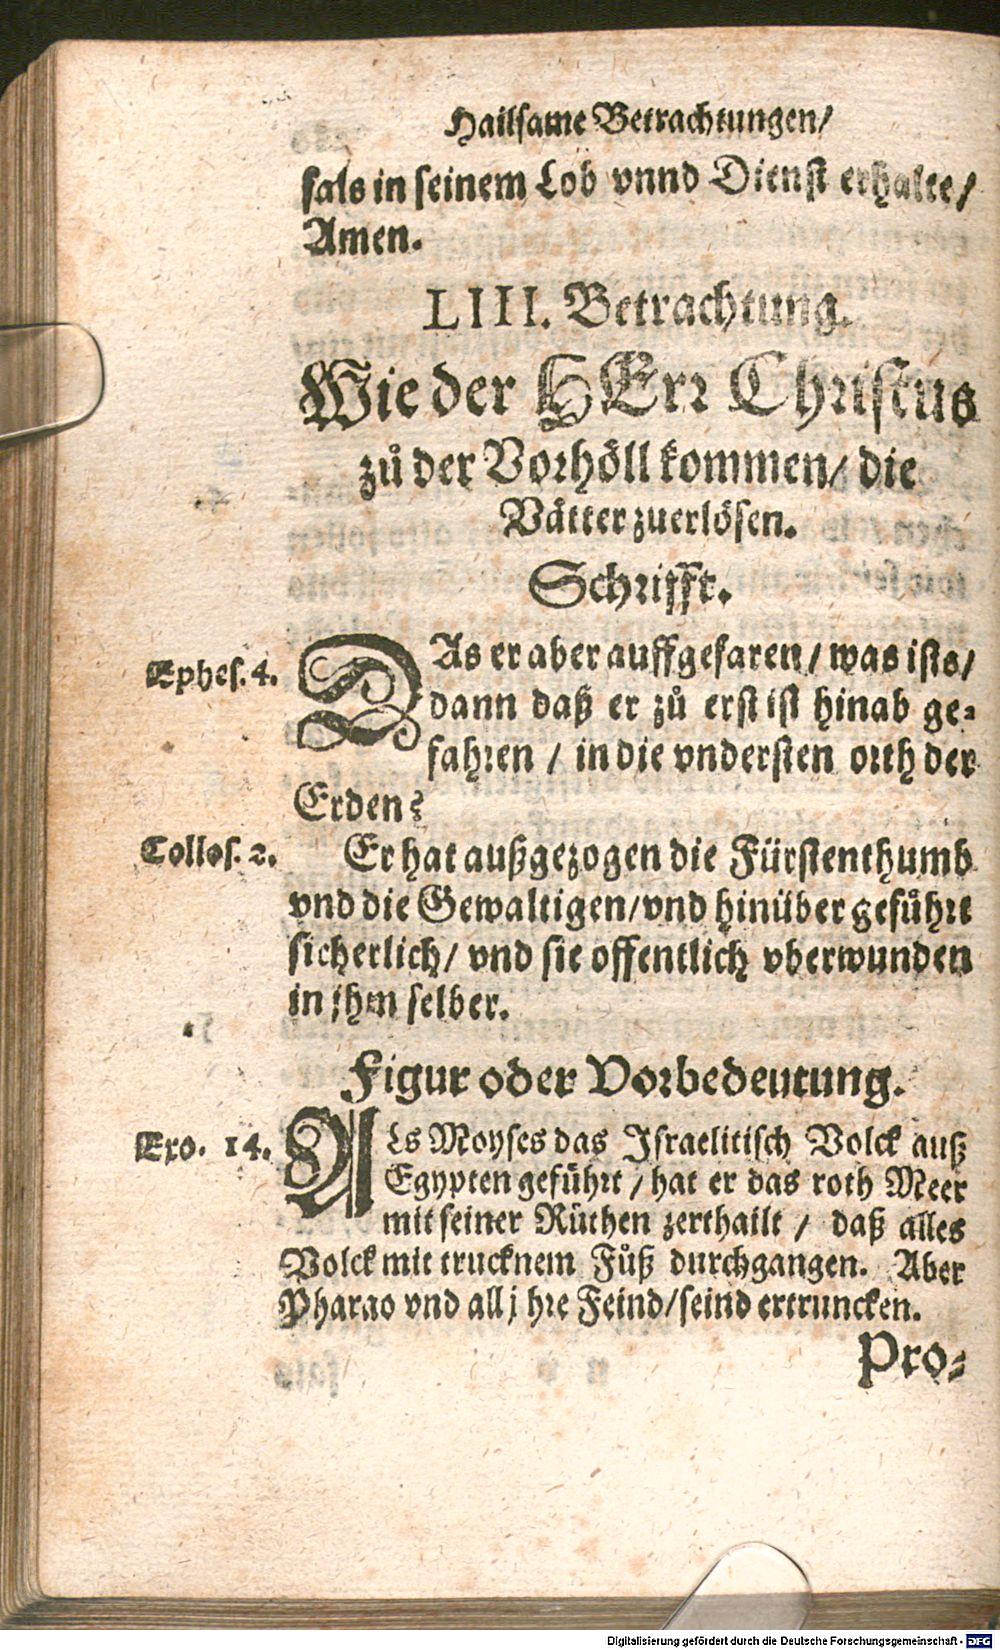 Hailsame Betrachtungen/
sals in seinem Lob vnnd Dienst erhalte/
Amen.
LIII. Betrachtung.
Wie der HErr Christus
zů der Vorhöll kommen/ die
Vätter zuerlösen.
Schrifft.
Ephes. 4.
DAs er aber auffgefaren/ was ists/
dann daß er zů erst ist hinab ge-
fahren / in die vndersten orth der
Erden?
Collos. 2.
Er hat außgezogen die Fürstenthumb
vnd die Gewaltigen/vnd hinüber gefůhrt
sicherlich/ vnd sie offentlich vberwunden
in jhm selber.
Figur oder Vorbedeutung.
Exo. 14.
ALs Moyses das Israelitisch Volck auß
Egypten gefůhrt / hat er das roth Meer
mit seiner Růthen zerthailt / daß alles
Volck mit trucknem Fůß durchgangen. Aber
Pharao vnd all jhre Feind/seind ertruncken.
Pro-
Digitalisierung gefördert durch die Deutsche Forschungsgemeinschaft - DFG